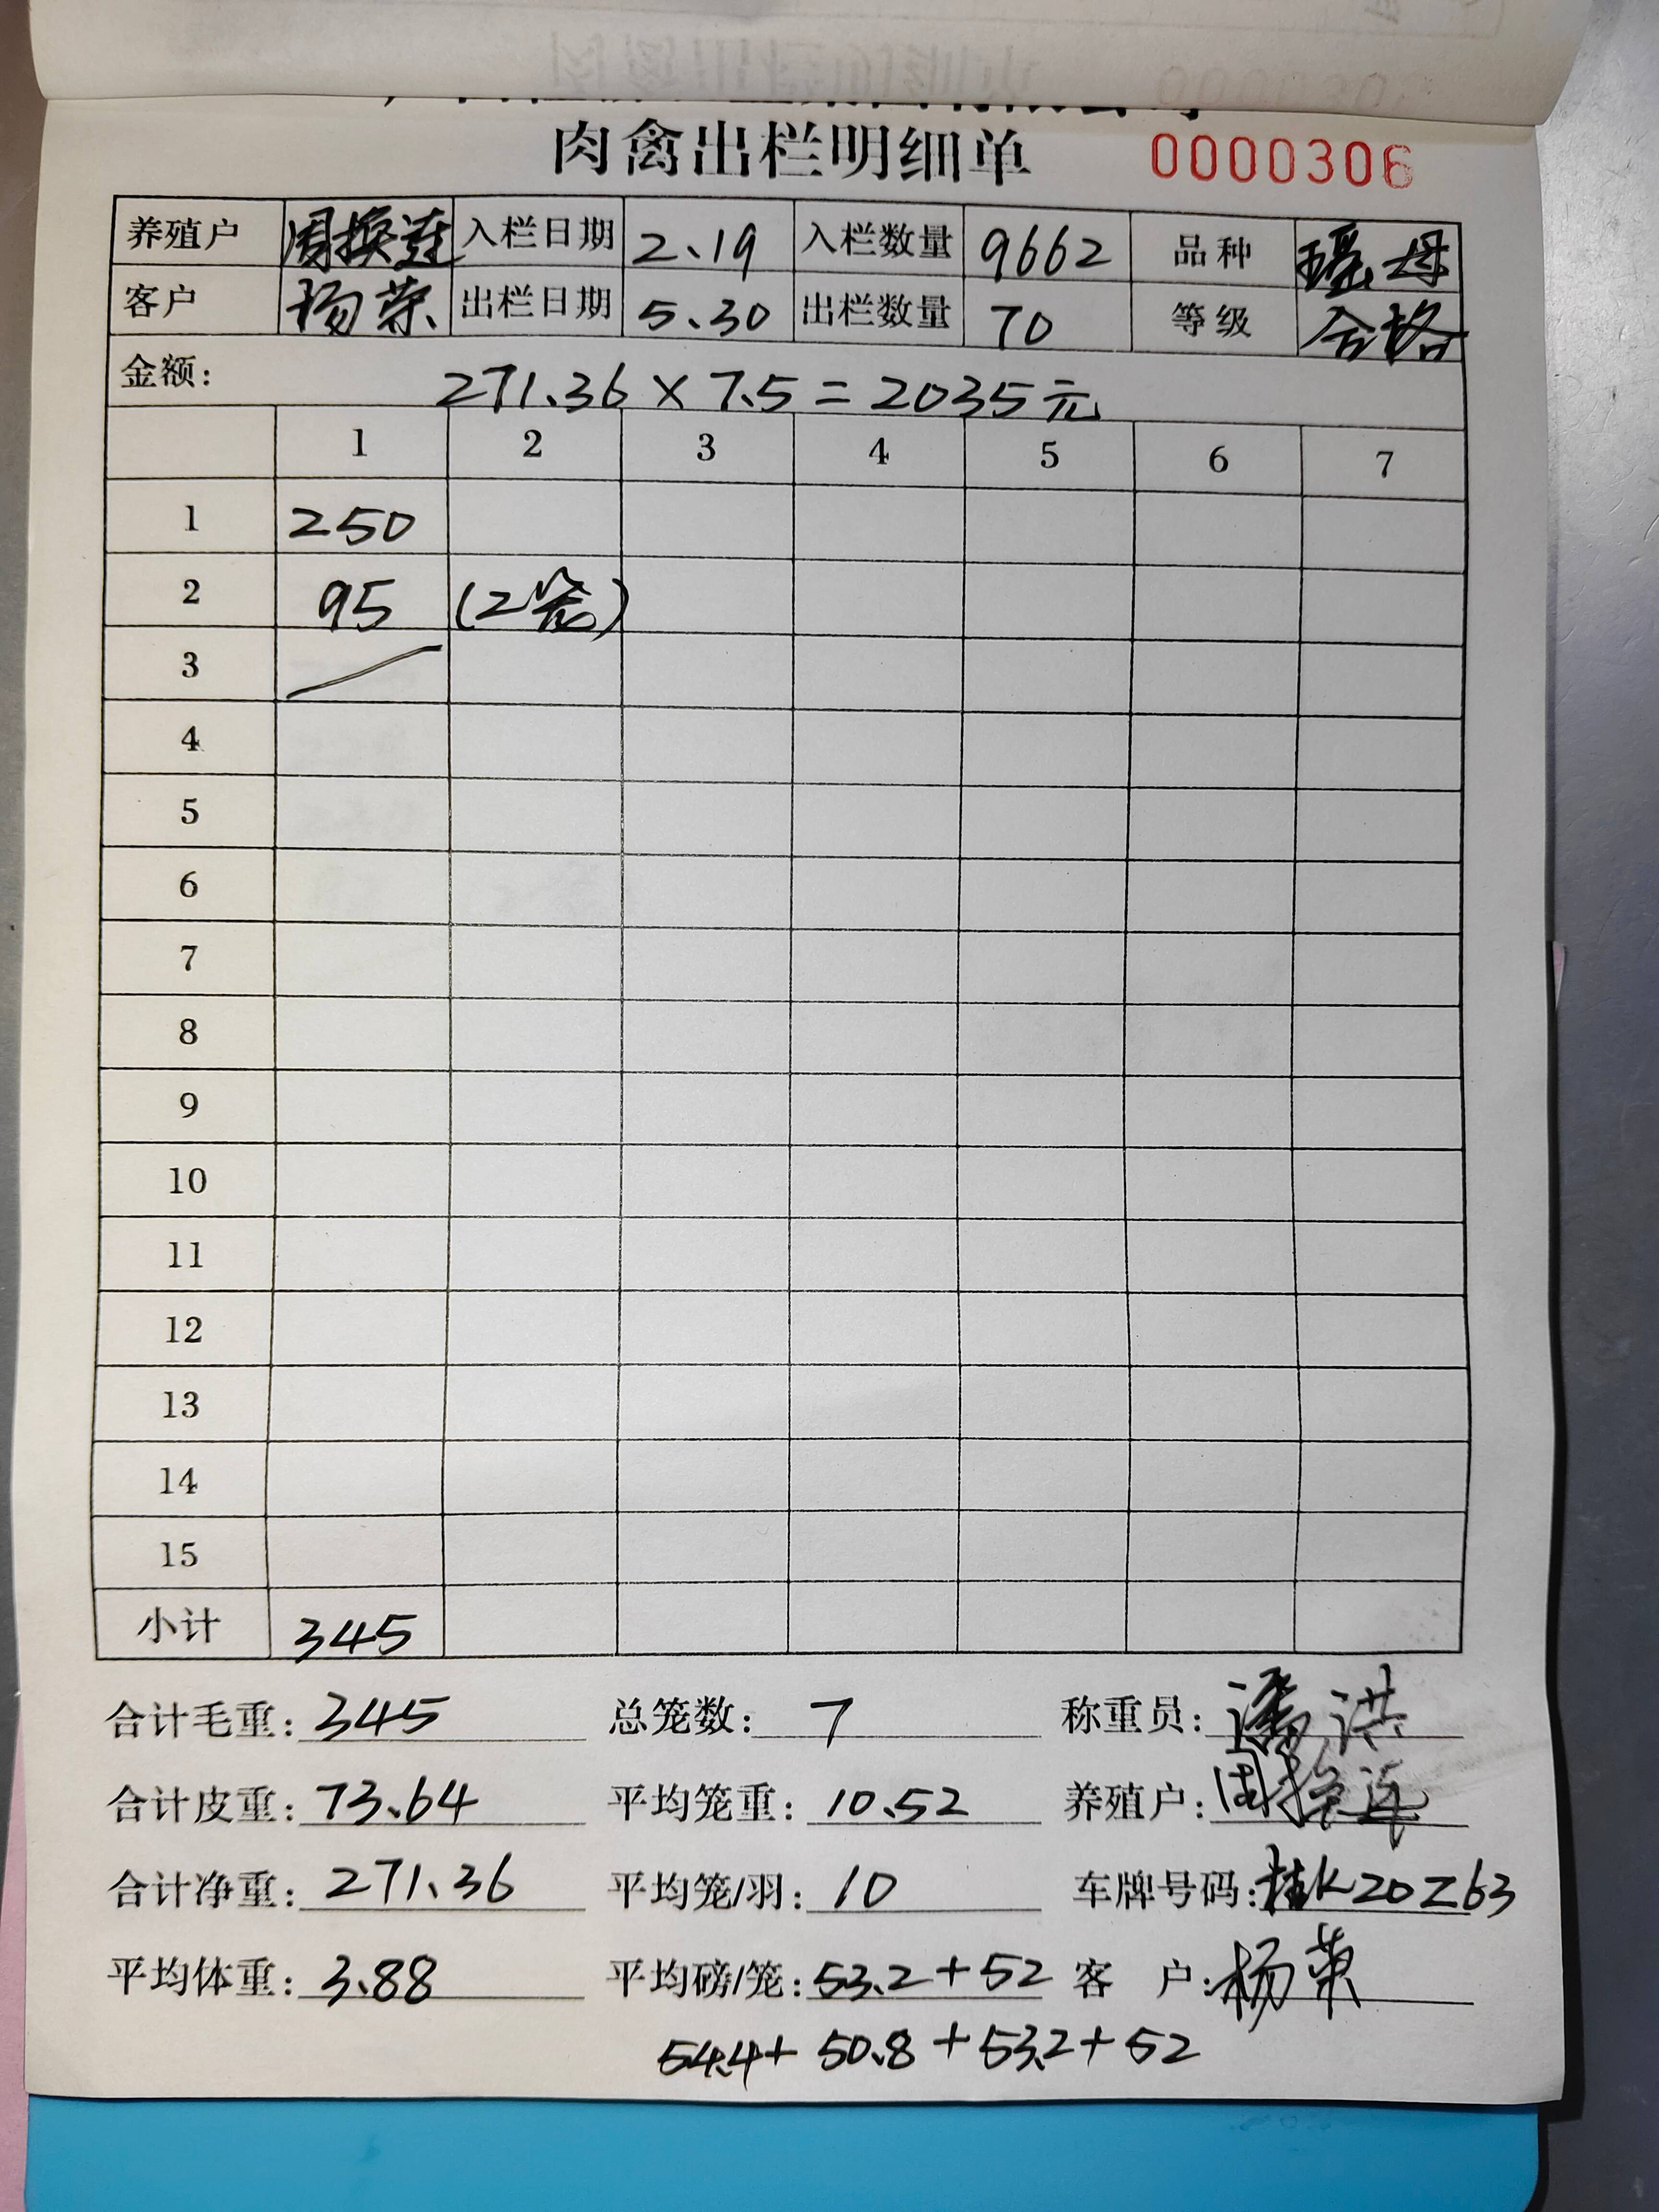 肉禽出栏明细单 0000306
养殖户 周换莲 入栏日期 2.19 入栏数量 9662 品种 瑶母
客户 杨荣 出栏日期 5.30 出栏数量 70 等级 合格
金额: 271.36 × 7.5 = 2035元
1 2 3 4 5 6 7
1 250
2 95 (2笼)
3
4
5
6
7
8
9
10
11
12
13
14
15
小计 345
合计毛重: 345 总笼数: 7 称重员: 潘洪
合计皮重: 73.64 平均笼重: 10.52 养殖户:
合计净重: 271.36 平均笼/羽: 10 车牌号码: 桂K20Z63
平均体重: 3.88 平均磅/笼: 53.2+52 客户: 杨荣
54.4+ 50.8 +53.2+52